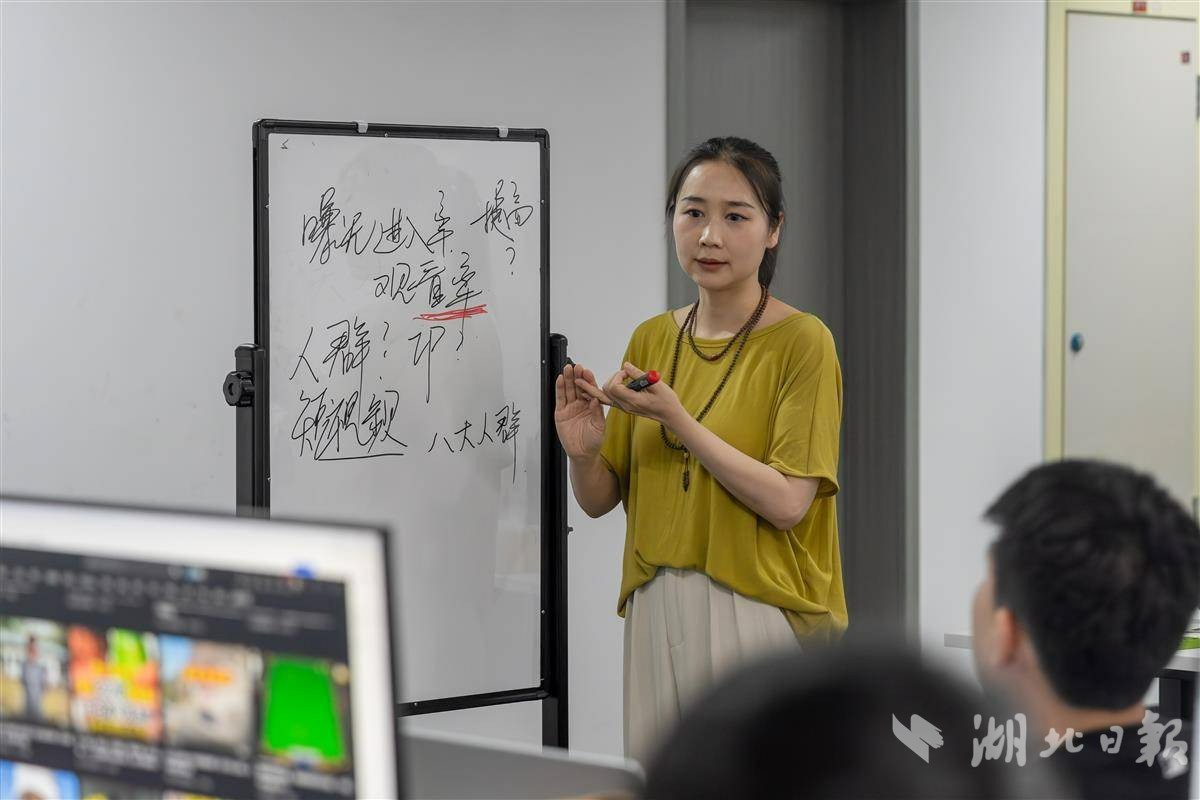 曝光/进入率 提高
？
观看率
人群？ 即？
短视频 八大人群
湖北日报